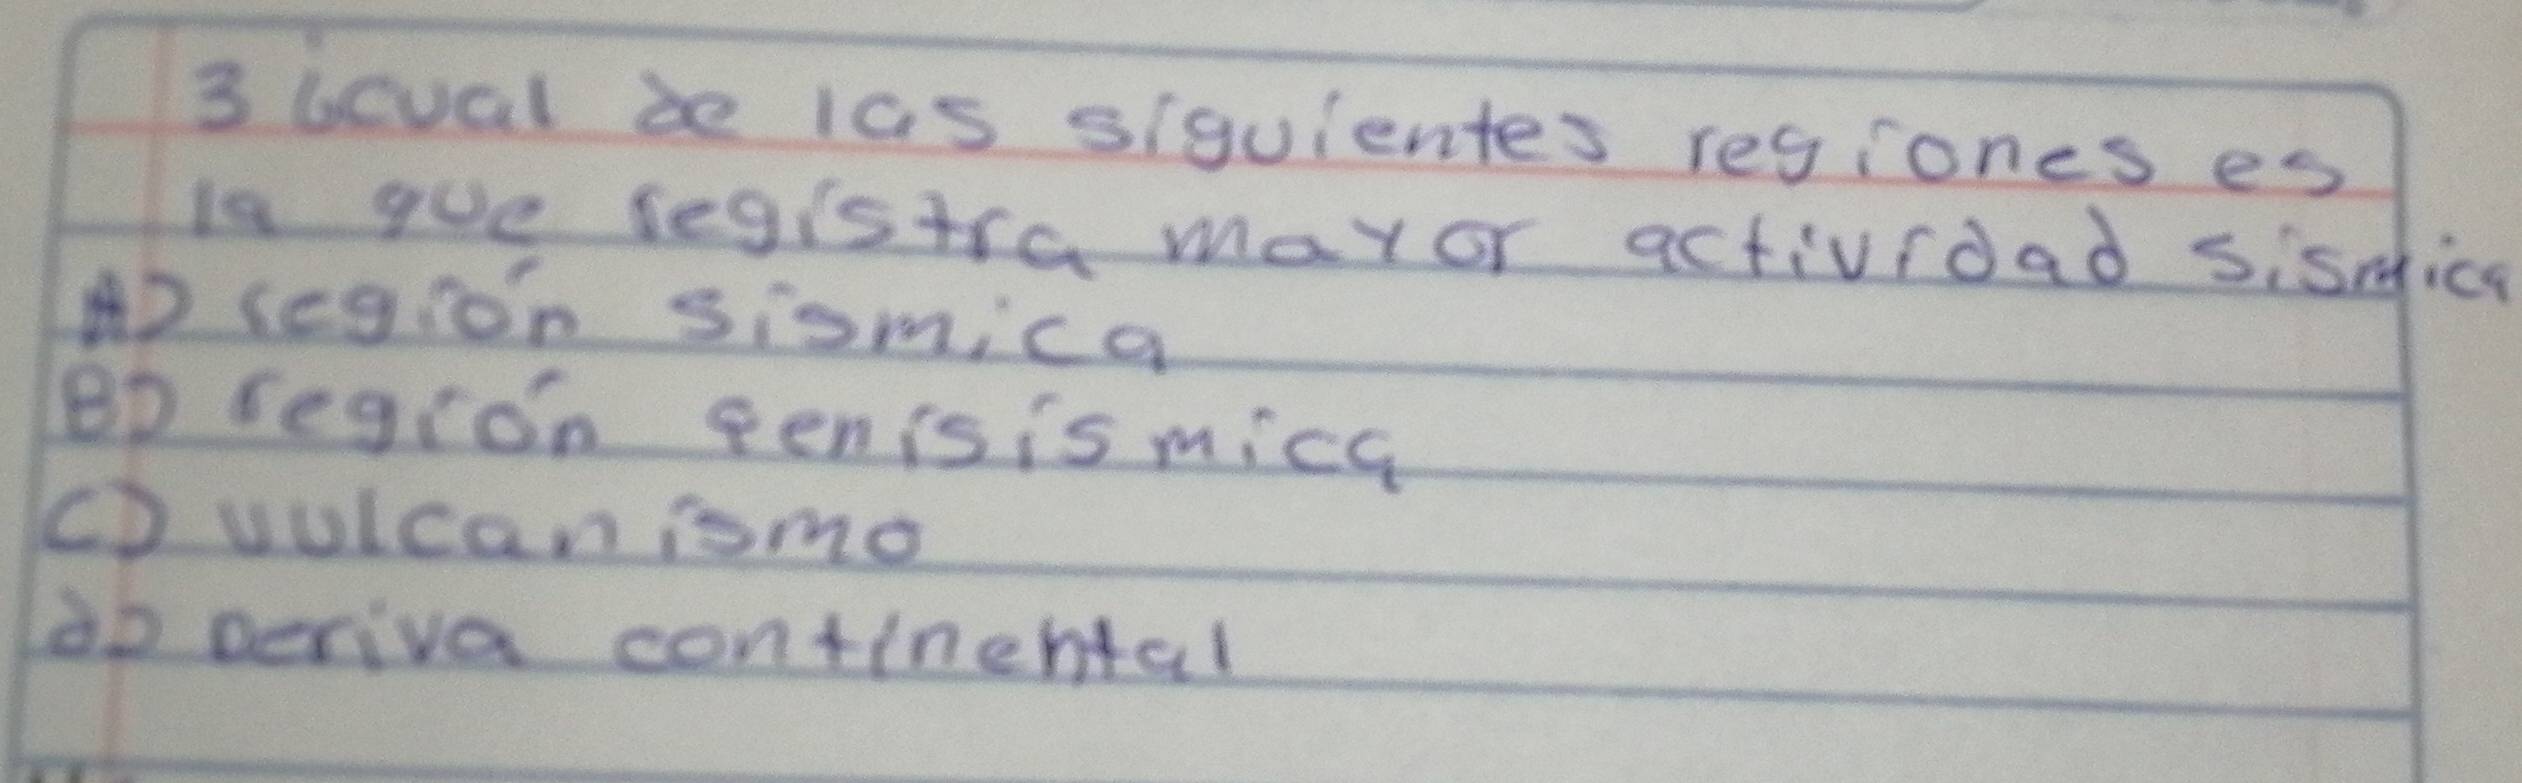 3 ¿cual de las siguientes regiones es
la que registra mayor actividad sismica
A) región sismica
B) región penisismica
C) vulcanismo
d) Deriva continental